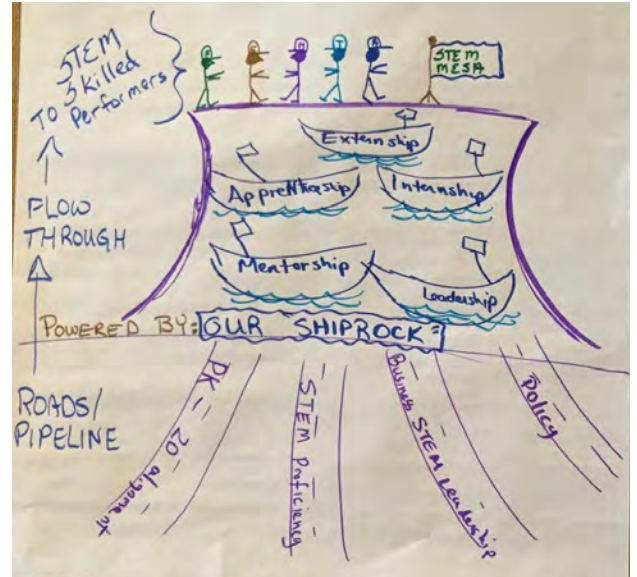 STEM
Skilled
Performers
TO
STEM
MESA
Externship
Apprenticeship
Internship
Mentorship
Leadership
FLOW
THROUGH
POWERED BY: OUR SHIPROCK:
ROADS/
PIPELINE
PK - 20 alignment
STEM Proficiency
Business STEM Leadership
Policy